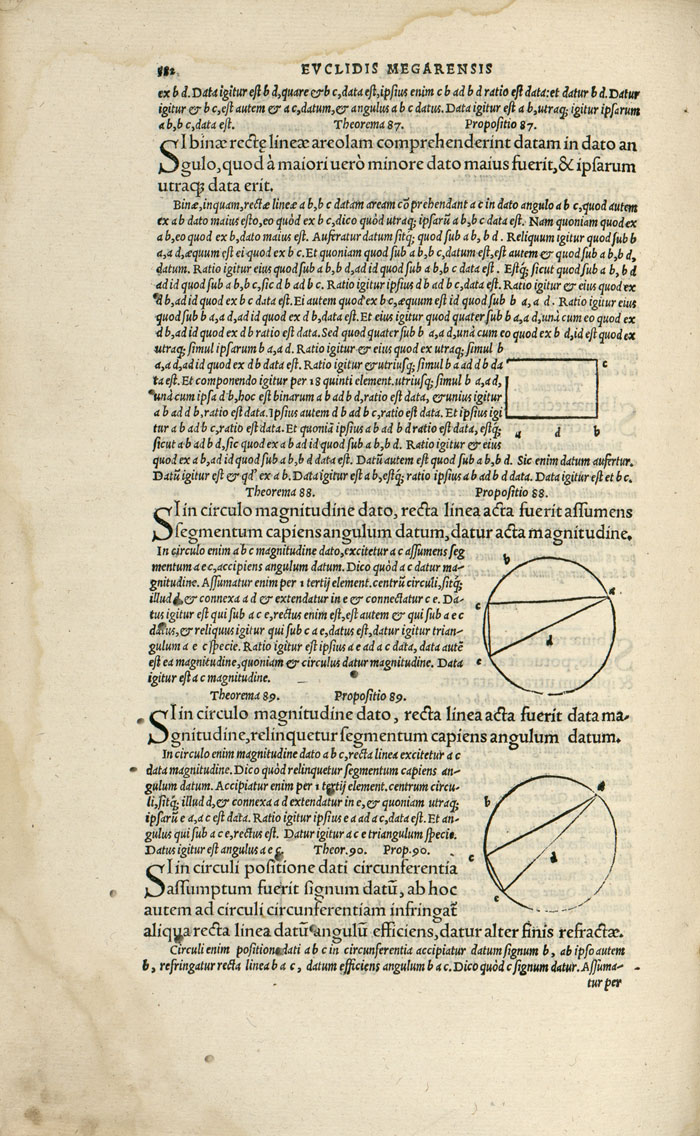 882 EVCLIDIS MEGARENSIS
ex b d. Data igitur est b d, quare & b c, data est, ipsius enim c b ad b d ratio est data: et datur b d. Datur
igitur & b c, est autem & a c, datum, & angulus a b c datus. Data igitur est a b, utraq; igitur ipsarum
a b, b c, data est. Theorema 87. Propositio 87.
SI binæ rectę lineæ areolam comprehenderint datam in dato an
gulo, quod à maiori uerò minore dato maius fuerit, & ipsarum
utraq; data erit.
Binæ, inquam, rectæ lineæ a b, b c datam aream cõprehendant a c in dato angulo a b c, quod autem
ex a b dato maius esto, eo quòd ex b c, dico quòd utraq; ipsarũ a b, b c data est. Nam quoniam quod ex
a b, eo quod ex b, dato maius est. Auferatur datum sitq; quod sub a b, b d. Reliquum igitur quod sub b
a, a d, æquum est ei quod ex b c. Et quoniam quod sub a b, b c, datum est, est autem & quod sub a b, b d,
datum. Ratio igitur eius quod sub a b, b d, ad id quod sub a b, b c data est. Estq; sicut quod sub a b, b d
ad id quod sub a b, b c, sic d b ad b c. Ratio igitur ipsius d b ad b c, data est. Ratio igitur & eius quod ex
d b, ad id quod ex b c data est. Ei autem quod ex b c, æquum est id quod sub b a, a d. Ratio igitur eius
quod sub b a, a d, ad id quod ex d b, data est. Et eius igitur quod quater sub b a, a d, unà cum eo quod ex
d b, ad id quod ex d b ratio est data. Sed quod quater sub b a, a d, unà cum eo quod ex b d, id est quod ex
utraq; simul ipsarum b a, a d. Ratio igitur & eius quod ex utraq; simul b
a, a d, ad id quod ex d b data est. Ratio igitur & utriusq; simul b a ad d b da
ta est. Et componendo igitur per 18 quinti element. utriusq; simul b a, a d,
unà cum ipsa d b, hoc est binarum a b ad b d, ratio est data, & unius igitur
a b ad d b, ratio est data. Ipsius autem d b ad b c, ratio est data. Et ipsius igi
tur a b ad b c, ratio est data. Et quoniã ipsius a b ad b d ratio est data, estq;
sicut a b ad b d, sic quod ex a b ad id quod sub a b, b d. Ratio igitur & eius
quod ex a b, ad id quod sub a b, b d data est. Datũ autem est quod sub a b, b d. Sic enim datum aufertur.
Datũ igitur est & qd' ex a b. Data igitur est a b, estq; ratio ipsius a b ad b d data. Data igitur est et b c.
c
a d b
Theorema 88. Propositio 88.
SI in circulo magnitudine dato, recta linea acta fuerit assumens
segmentum capiens angulum datum, datur acta magnitudine.
In circulo enim a b c magnitudine dato, excitetur a c assumens seg
mentum a e c, accipiens angulum datum. Dico quòd a c datur ma-
gnitudine. Assumatur enim per 1 tertij element. centrũ circuli, sitq;
illud d, & connexa a d & extendatur in e & connectatur c e. Da-
tus igitur est qui sub a c e, rectus enim est, est autem & qui sub a e c
datus, & reliquus igitur qui sub c a e, datus est, datur igitur trian-
gulum a e c specie. Ratio igitur est ipsius a e ad a c data, data autẽ
est e a magnitudine, quoniam & circulus datur magnitudine. Data
igitur est a c magnitudine.
b
a
c
d
e
Theorema 89. Propositio 89.
SI in circulo magnitudine dato, recta linea acta fuerit data ma-
gnitudine, relinquetur segmentum capiens angulum datum.
In circulo enim magnitudine dato a b c, recta linea excitetur a c
data magnitudine. Dico quòd relinquetur segmentum capiens an-
gulum datum. Accipiatur enim per 1 tertij element. centrum circu-
li, sitq; illud d, & connexa a d extendatur in e, & quoniam utraq;
ipsarũ e a, a c est data. Ratio igitur ipsius e a ad a c, data est. Et an-
gulus qui sub a c e, rectus est. Datur igitur a c e triangulum specie.
Datus igitur est angulus a e c. Theor. 90. Prop. 90.
a
b
c
d
e
SI in circuli positione dati circunferentia
assumptum fuerit signum datũ, ab hoc
autem ad circuli circunferentiam infringat̃
aliqua recta linea datũ angulũ efficiens, datur alter finis refractæ.
Circuli enim positione dati a b c in circunferentia accipiatur datum signum b, ab ipso autem
b, refringatur recta linea b a c, datum efficiens angulum b a c. Dico quòd c signum datur. Assuma-
tur per